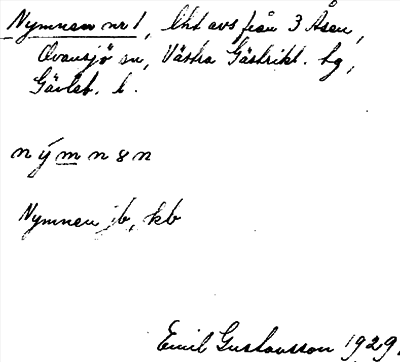 Nymnen nr 1, lht avs från 3 Åsen,
Ovansjö sn, Västra Gästrikl. hg,
Gävleb. l.
nýmnen
Nymnen jb, kb
Emil Gustavsson 1929.